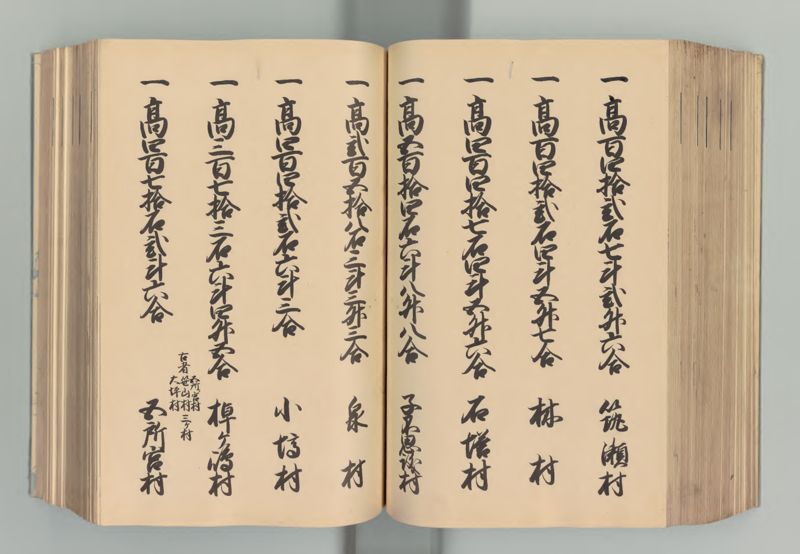 一 高百四拾弐石七斗弐升六合 筑瀬村
一 高百四拾弐石四斗五升七合 林村
一 高四百四拾七石四斗五升六合 石塔村
一 高五百拾四石六斗八升八合 子不思議村
一 高弐百五拾八石二斗三升三合 泉村
一 高四百四拾弐石六斗三合 小塙村
一 高三百七拾三石六斗四升五合 村
古者 笹山村 三ケ村
大坪村
一 高四百七拾石弐斗六合 五所宮村